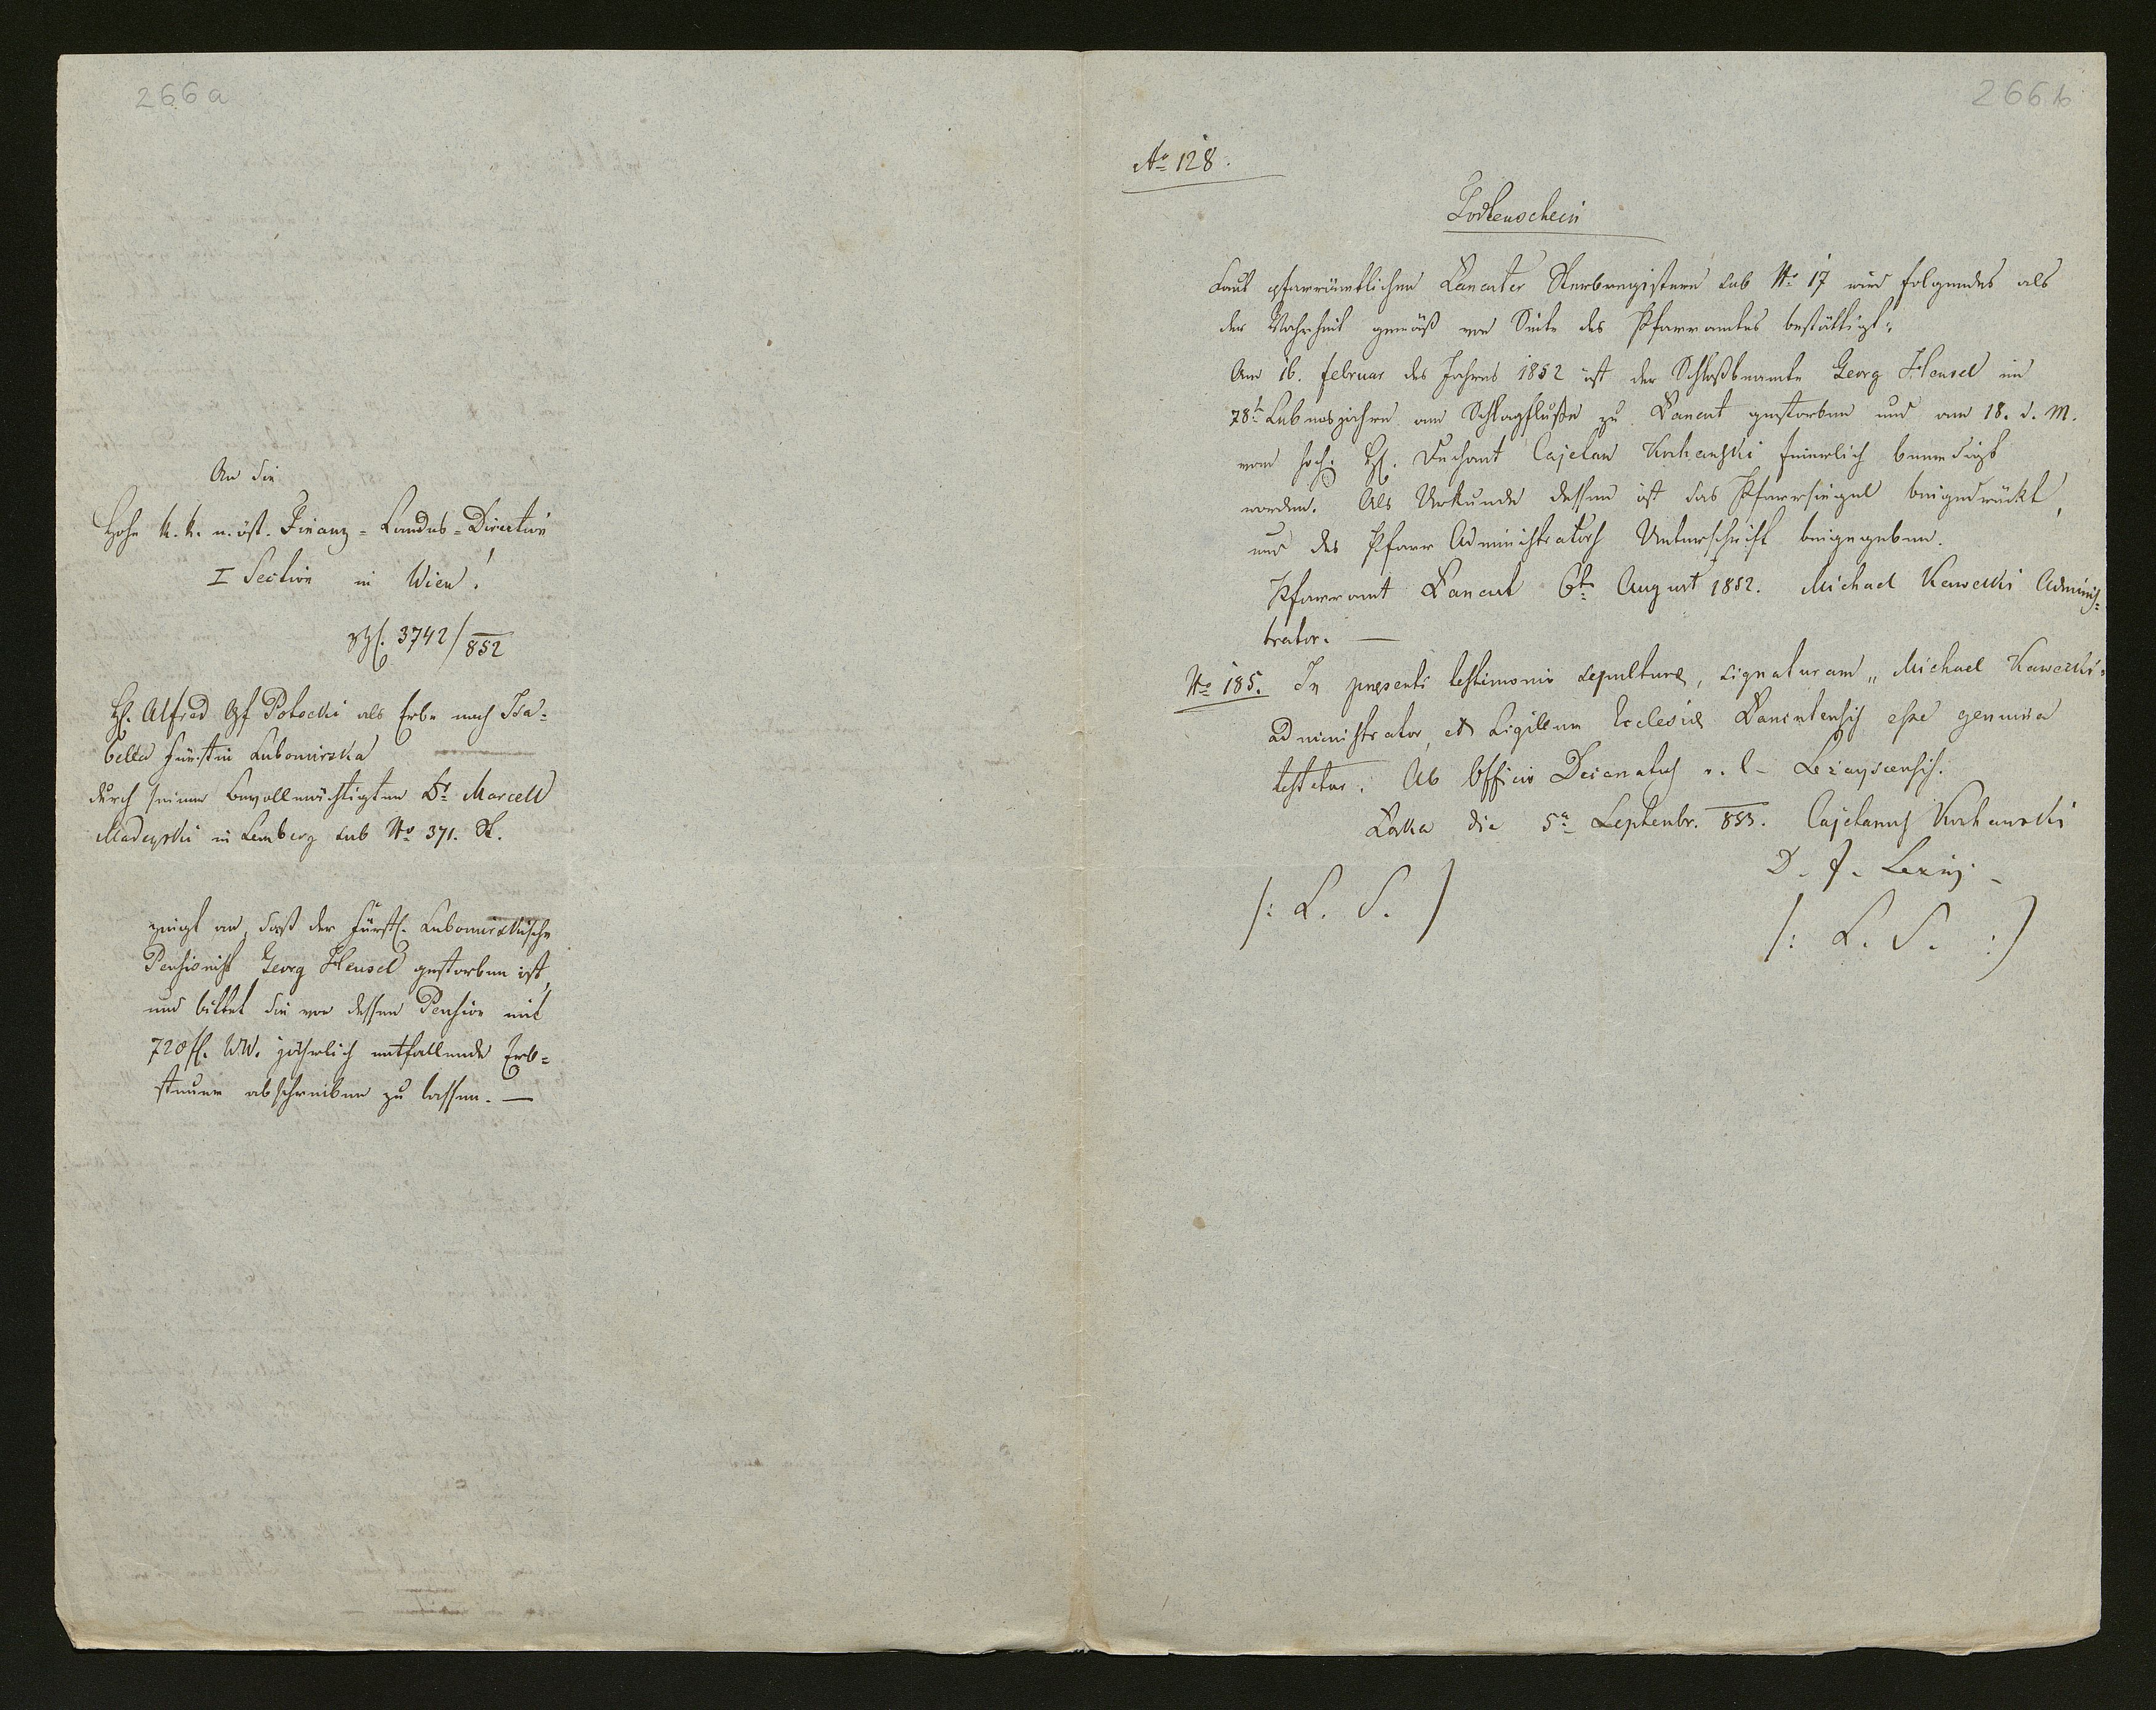 266a
An die
Hohe k. k. n. öst. Finanz-Landes-Direction
I Section in Wien!
zZl. 3742/852
H. Alfred Gf Potocki als Erbe nach Isa-
bella Fürstin Lubomirska
durch seinen Bevollmächtigten Dr. Marcell
Madeyski in Lemberg sub No 371. St.
zeigt an, daß der fürstl. Lubomirskische
Pensionist Georg Hensel gestorben ist,
und bittet die von dessen Pension mit
720 fl. WW. jährlich entfallende Erb-
steuer abschreiben zu lassen. —
266b
No 128.
Todtenschein
Laut pfarrämtlichen Lancuter Sterbregistern sub No 17 wird folgendes als
der Wahrheit gemäß von Seite des Pfarramtes bestättigt:
Am 16. Februar des Jahres 1852 ist der Schloßbeamte Georg Hensel im
78t Lebensjahre am Schlagfluße zu Lancut gestorben und am 18. d. M.
vom hoch. H. Dechant Cajetan Kochanski feierlich beerdigt
worden. Als Urkunde dessen ist das Pfarrsiegel beigedrückt,
und des Pfarr Administrators Unterschrift beigegeben.
Pfarramt Lancut 6t August 1852. Michael Kawecki Adminis-
trator. —
No 185. In præsenti testimonio sepulturæ, signaturam „Michael Kawecki"
administrator, et Sigillum Ecclesiæ Lancutensis esse genuina
testatur. Ab Officio Decanatus r. l. Lezayscensis.
Łąka die 5a Septenbr. 853. Cajetanus Kochanski
D. F. Lezaj.
/: L. S. /
/: L. S. :/